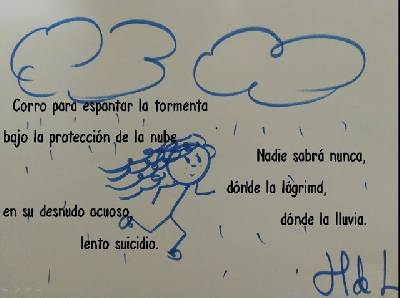 Corro para espantar la tormenta
bajo la protección de la nube
en su desnudo acuoso,
lento suicidio.
Nadie sabrá nunca,
dónde la lágrima,
dónde la lluvia.
H de L